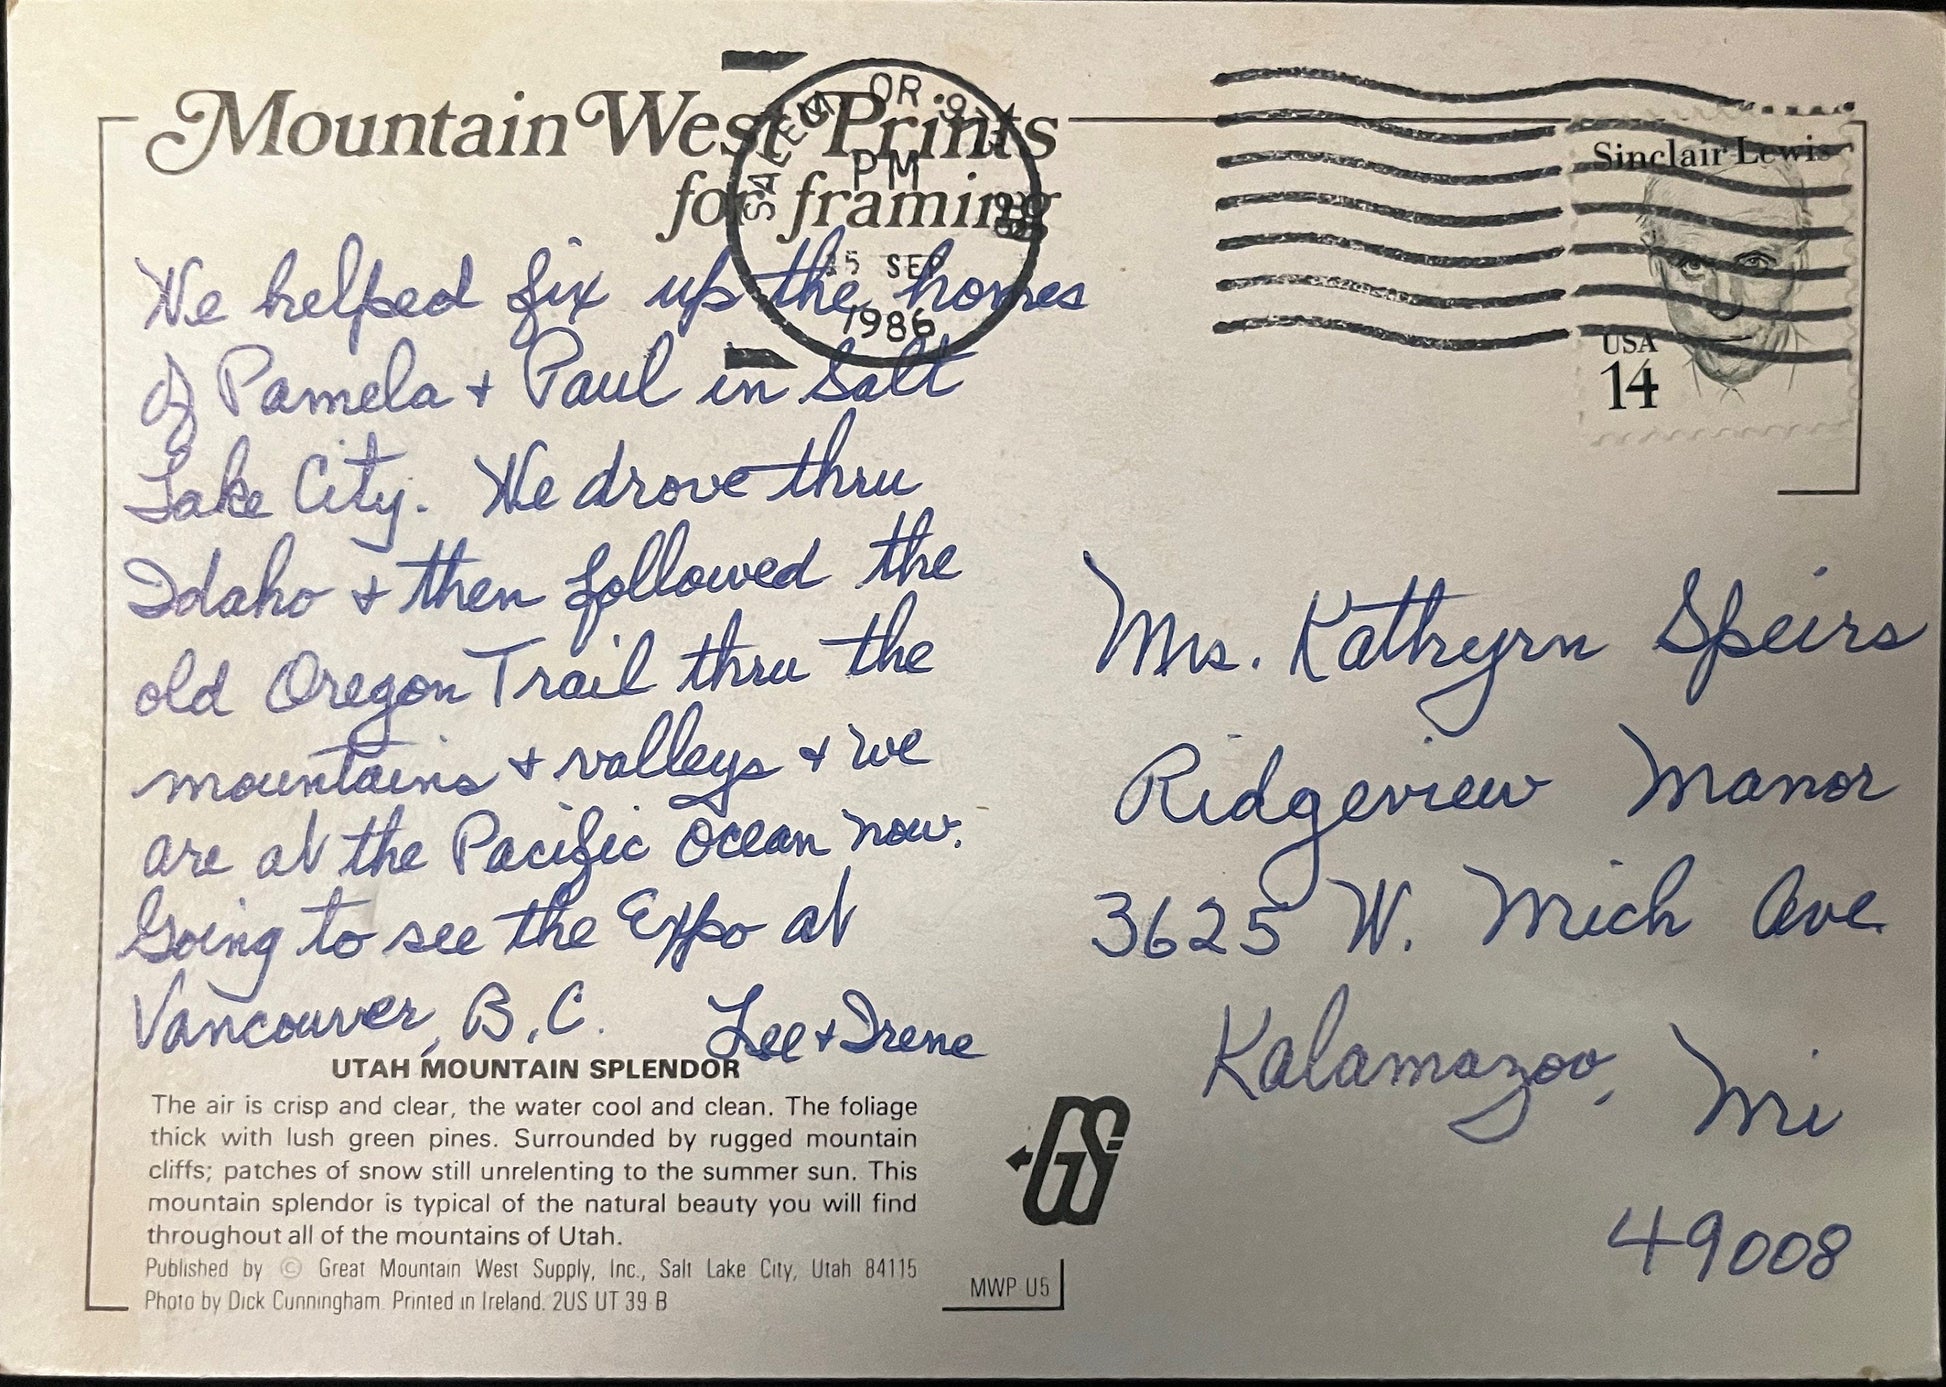 Mountain West Prints
for framing
SALEM OR
PM
SEP
1986
Sinclair Lewis
USA
14
We helped fix up the homes
of Pamela + Paul in Salt
Lake City. We drove thru
Idaho + then followed the
old Oregon Trail thru the
mountains + valleys + we
are at the Pacific Ocean now.
Going to see the Expo at
Vancouver, B.C. Lee + Irene
Ms. Kathryrn Speirs
Ridgeview Manor
3625 W. Mich Ave.
Kalamazoo, Mi
49008
UTAH MOUNTAIN SPLENDOR
The air is crisp and clear, the water cool and clean. The foliage
thick with lush green pines. Surrounded by rugged mountain
cliffs; patches of snow still unrelenting to the summer sun. This
mountain splendor is typical of the natural beauty you will find
throughout all of the mountains of Utah.
Published by © Great Mountain West Supply, Inc., Salt Lake City, Utah 84115
Photo by Dick Cunningham. Printed in Ireland. 2US UT 39 B
MWP U5